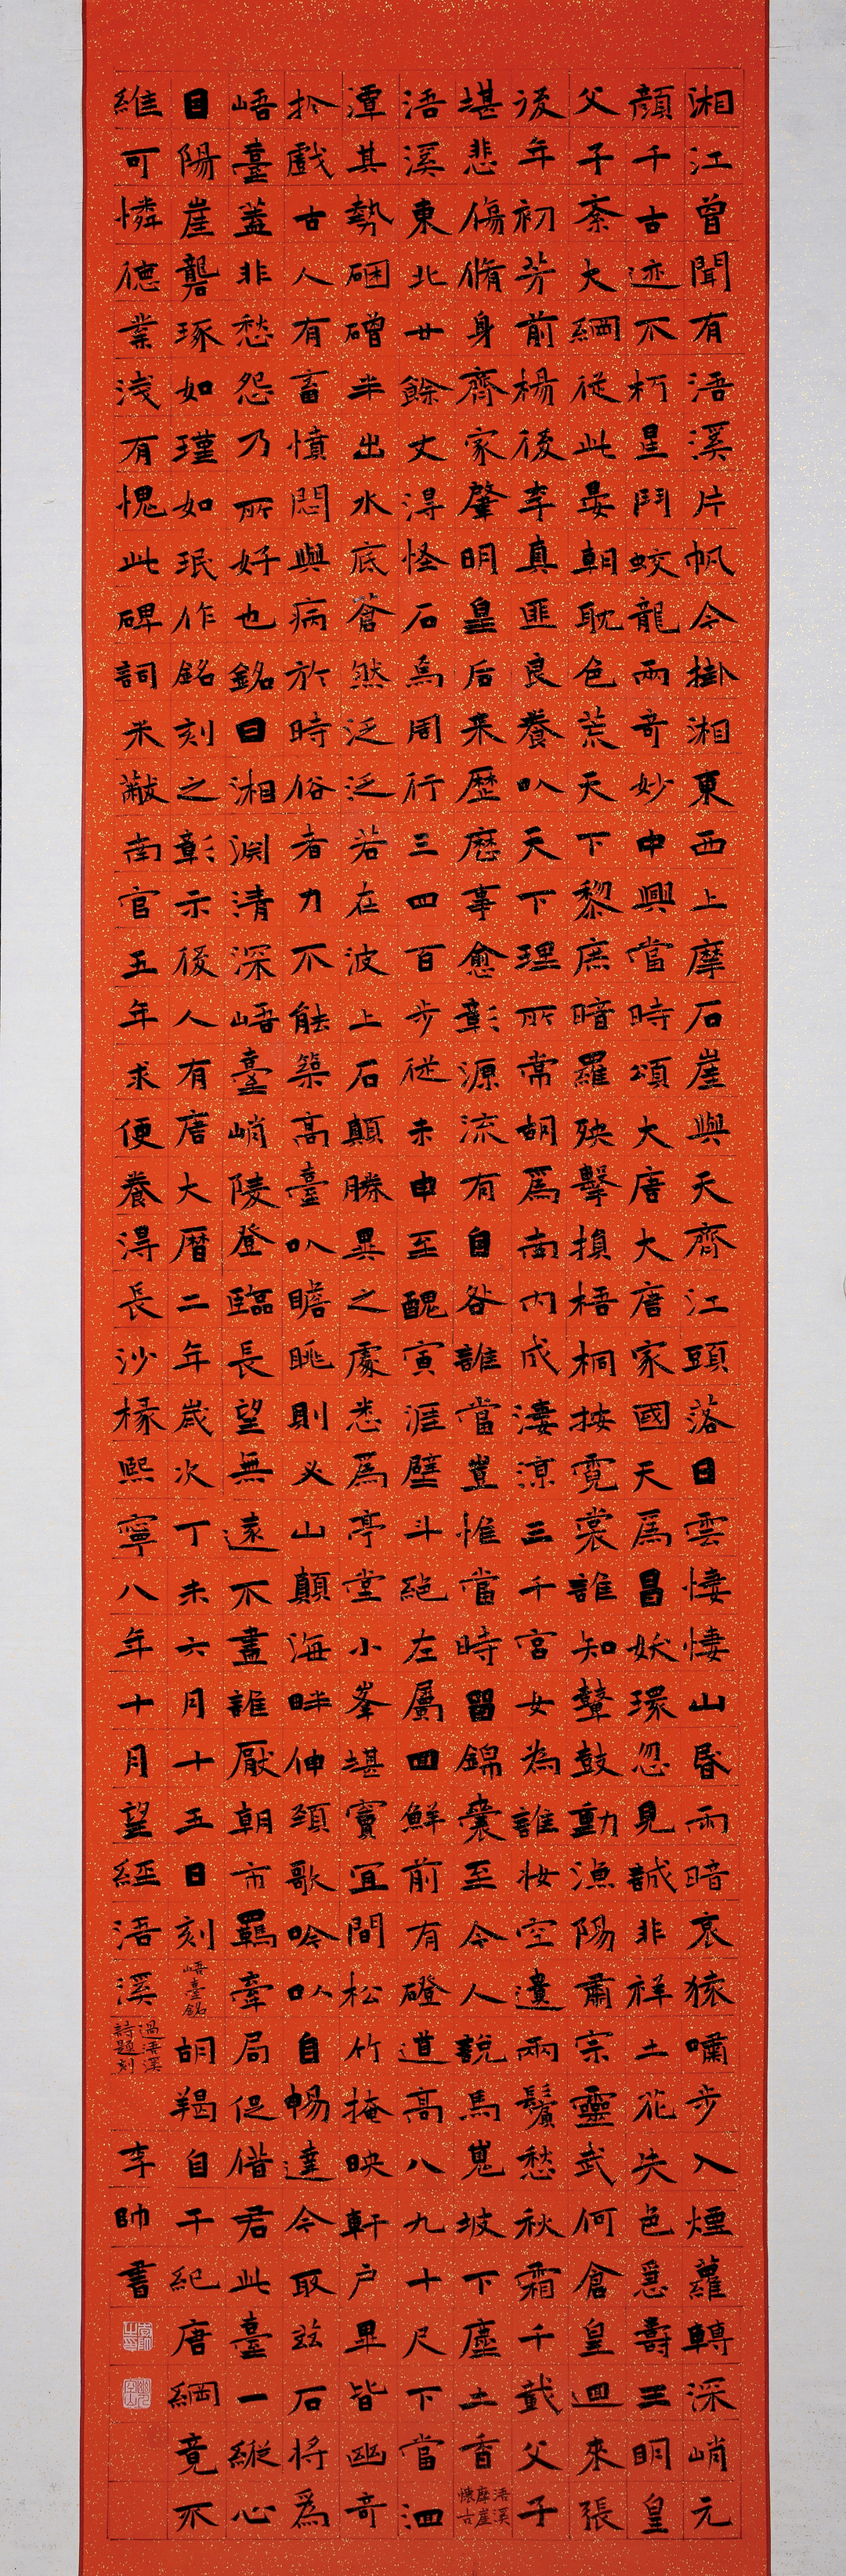 湘江曾聞有浯溪片帆今掛湘東西上摩石崖與天齊江頭落日雲悽悽山昏雨暗哀猿嘯步入煙蘿轉深峭元
顏千古迹不朽星鬥蛟龍兩奇妙中興當時頌大唐大唐家國天爲昌妖環忽見誠非祥土花失色惡壽王明皇
父子紊大綱從此晏朝耽色荒天下黎庶暗羅殃擊損梧桐按霓裳誰知鼙鼓動漁陽肅宗靈武何倉皇迴來張
後年初芳前楊後李真匪良養以天下理所常胡爲南内成淒涼三千宮女為誰妝空遺兩鬢愁秋霜千載父子
堪悲傷脩身齊家肇明皇后来歷歷事愈彰源流有自咎誰當豈惟當時留錦囊至今人說馬嵬坡下塵土香
浯溪摩崖懷古
浯溪東北廿餘丈得怪石焉周行三四百步從未申至醜寅涯壁斗絕左屬回鮮前有磴道高八九十尺下當洄
潭其勢硱磳半出水底蒼然泛泛若在波上石顛勝異之處悉爲亭堂小峯堪竇宜間松竹掩映軒户畢皆幽奇
扵戲古人有畜憤悶與病於時俗者力不能築高臺以瞻眺則必山顛海畔伸頸歌吟以自暢達今取兹石将爲
峿臺蓋非愁怨乃所好也銘曰湘淵清深峿臺峭陵登臨長望無遠不盡誰厭朝市羈牽局促借君此臺一縱心
目陽崖礱琢如瑾如珉作銘刻之彰示後人有唐大曆二年歲次丁未六月十五日刻
峿臺銘
胡羯自干紀唐綱竟不
維可憐德業淺有愧此碑詞米黻南官五年求便養得長沙椽熙寧八年十月望經浯溪
過浯溪詩題刻
李帥書